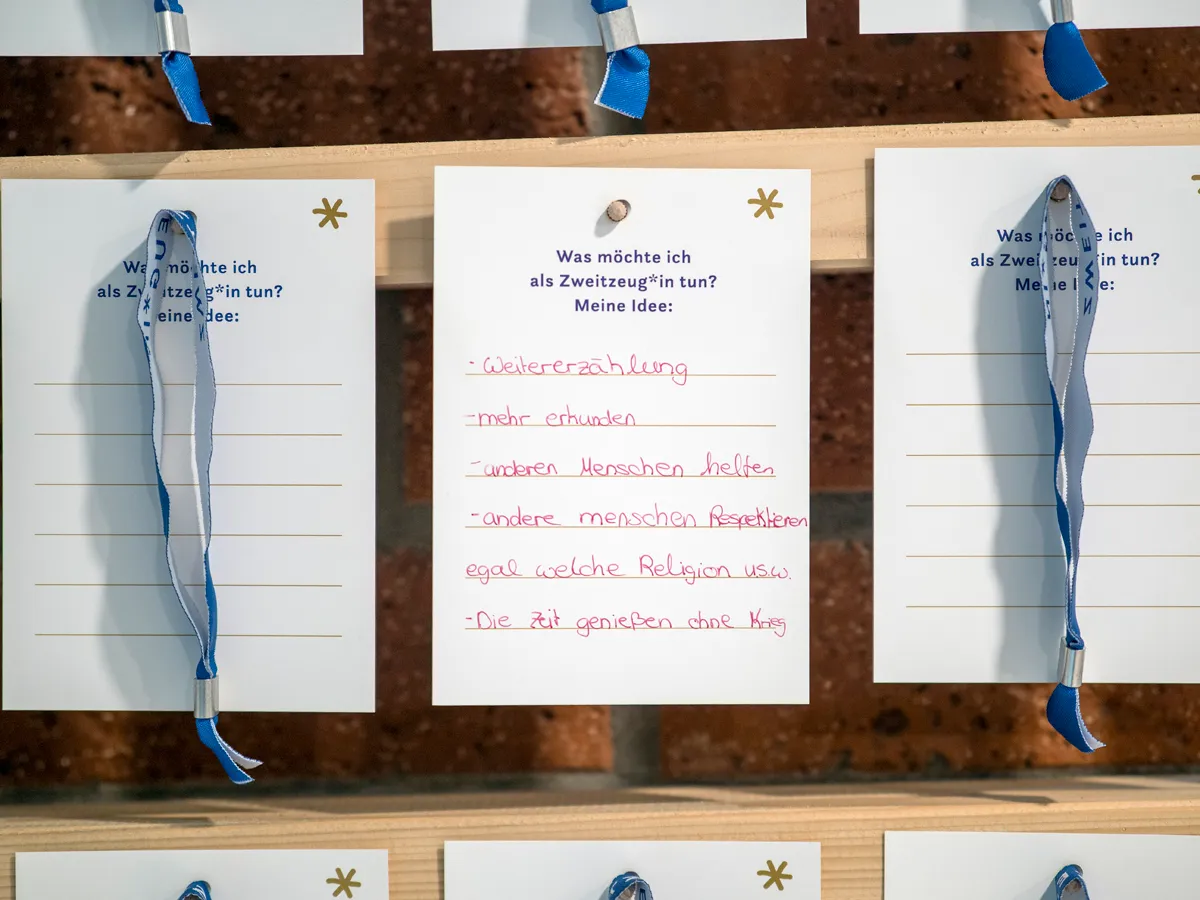 Was möchte ich
als Zweitzeug*in tun?
Meine Idee:
Was möchte ich
als Zweitzeug*in tun?
Meine Idee:
- Weitererzählung
- mehr erkunden
- anderen Menschen helfen
- andere menschen Respektieren
egal welche Religion u.s.w.
- Die Zeit genießen ohne Krieg
Was möchte ich
als Zweitzeug*in tun?
Meine Idee: